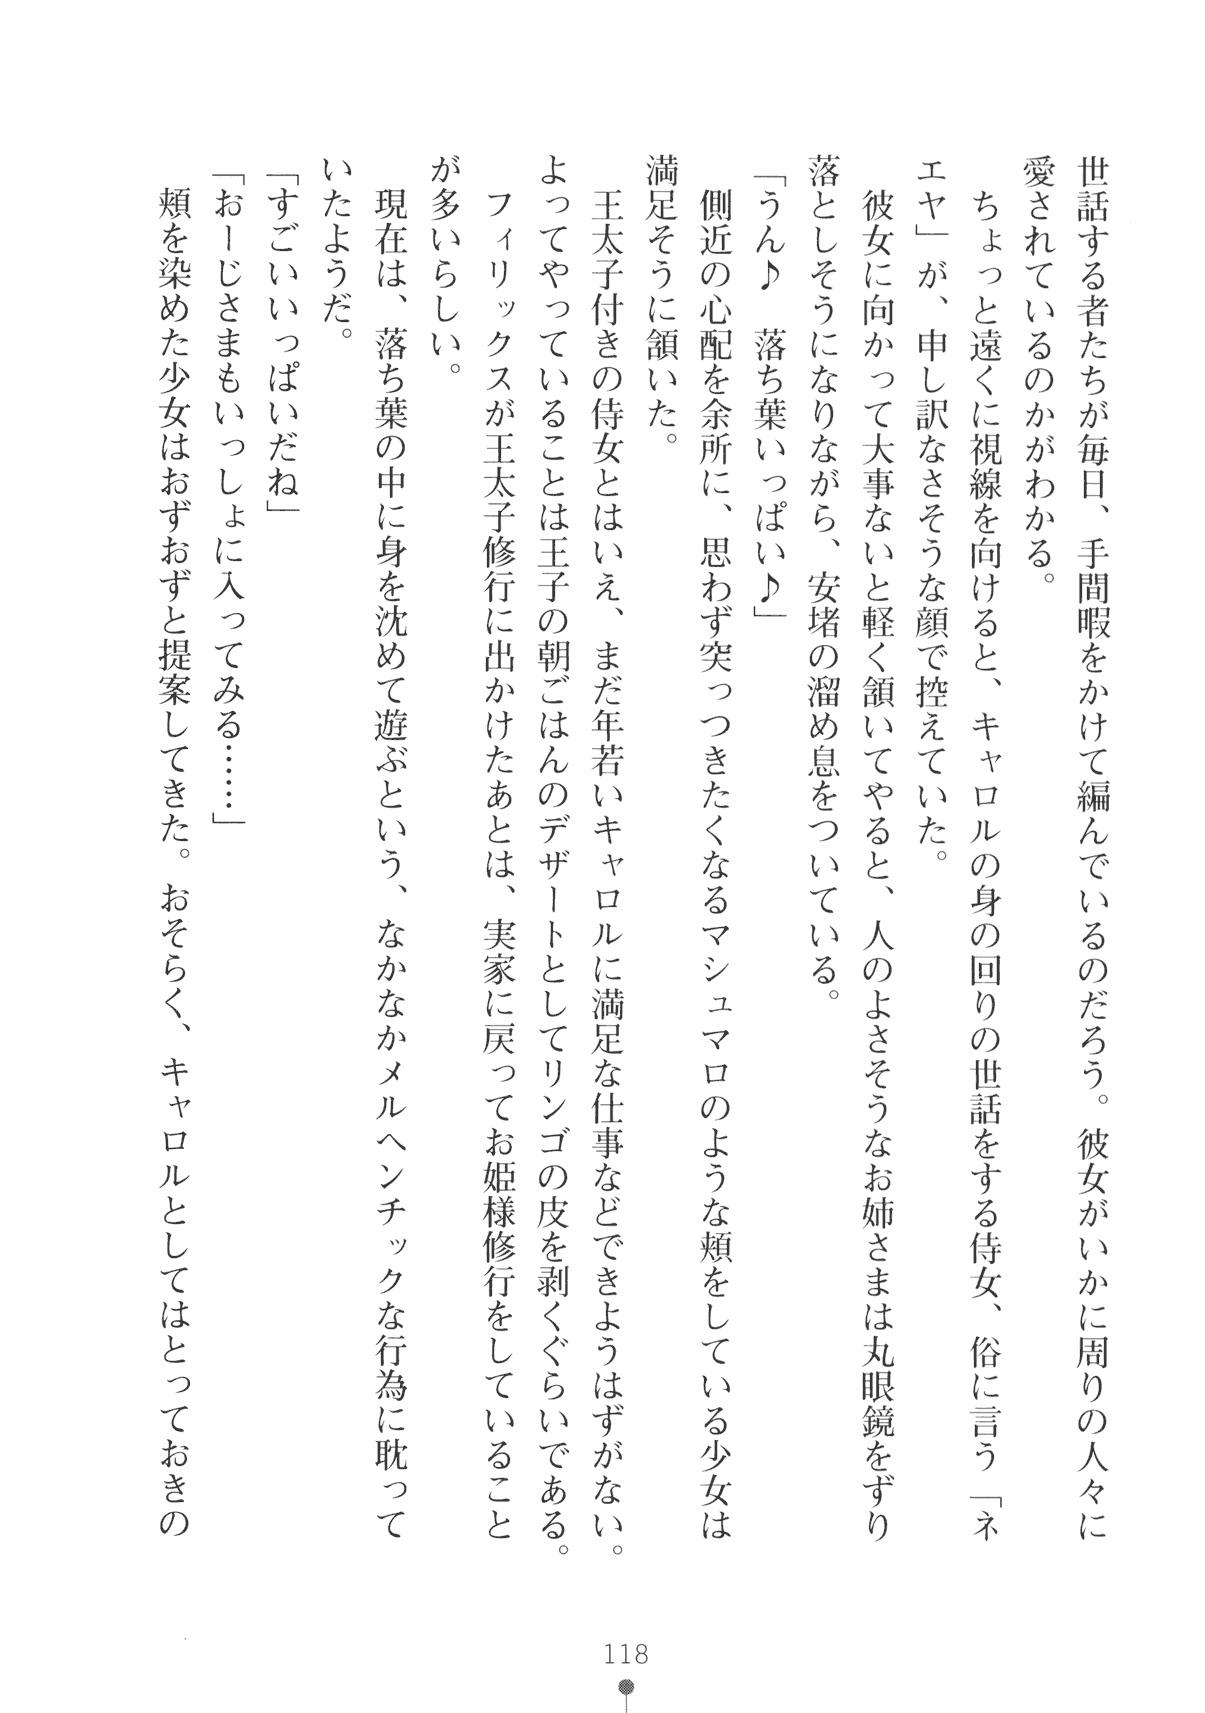 世話する者たちが毎日、手間暇をかけて編んでいるのだろう。彼女がいかに周りの人々に
愛されているのかがわかる。
　ちょっと遠くに視線を向けると、キャロルの身の回りの世話をする侍女、俗に言う「ネ
エヤ」が、申し訳なさそうな顔で控えていた。
　彼女に向かって大事ないと軽く頷いてやると、人のよさそうなお姉さまは丸眼鏡をずり
落としそうになりながら、安堵の溜め息をついている。
「うん♪　落ち葉いっぱい♪」
　側近の心配を余所に、思わず突っつきたくなるマシュマロのような頬をしている少女は
満足そうに頷いた。
　王太子付きの侍女とはいえ、まだ年若いキャロルに満足な仕事などできようはずがない。
よってやっていることは王子の朝ごはんのデザートとしてリンゴの皮を剥くぐらいである。
　フィリックスが王太子修行に出かけたあとは、実家に戻ってお姫様修行をしていること
が多いらしい。
　現在は、落ち葉の中に身を沈めて遊ぶという、なかなかメルヘンチックな行為に耽って
いたようだ。
「すごいいっぱいだね」
「おーじさまもいっしょに入ってみる……」
　頬を染めた少女はおずおずと提案してきた。おそらく、キャロルとしてはとっておきの
118